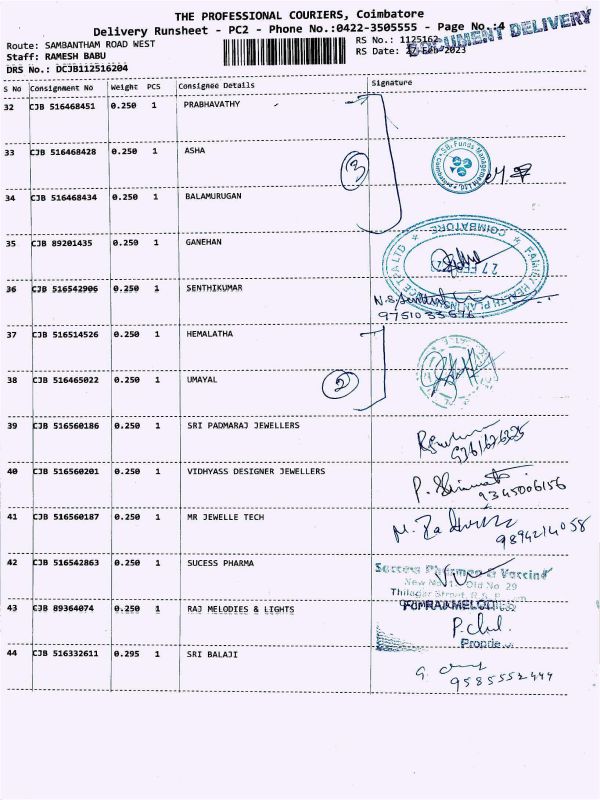 THE PROFESSIONAL COURIERS, Coimbatore
Delivery Runsheet - PC2 - Phone No.:0422-3505555 - Page No.:4
DOCUMENT DELIVERY
Route: SAMBANTHAM ROAD WEST
RS No.: 1125162
Staff: RAMESH BABU
RS Date: 27-Feb-2023
DRS No.: DCJB112516204
S No Consignment No Weight PCS Consignee Details Signature
32 CJB 516468451 0.250 1 PRABHAVATHY
33 CJB 516468428 0.250 1 ASHA
3
SBI Funds Management
34 CJB 516468434 0.250 1 BALAMURUGAN
35 CJB 89201435 0.250 1 GANEHAN
FAMILY HEALTH PLAN INSURANCE TPA LTD
COIMBATORE
27 FEB
36 CJB 516542906 0.250 1 SENTHIKUMAR
9751033576
37 CJB 516514526 0.250 1 HEMALATHA
38 CJB 516465022 0.250 1 UMAYAL
2
39 CJB 516560186 0.250 1 SRI PADMARAJ JEWELLERS
40 CJB 516560201 0.250 1 VIDHYASS DESIGNER JEWELLERS
9345006156
41 CJB 516560187 0.250 1 MR JEWELLE TECH
9894214058
42 CJB 516542863 0.250 1 SUCESS PHARMA
Success Pharma & Vaccine
Old No. 29
Street, R.S. Puram
43 CJB 89364074 0.250 1 RAJ MELODIES & LIGHTS
For RAJ MELODIES
Proprie
44 CJB 516332611 0.295 1 SRI BALAJI
9585552444